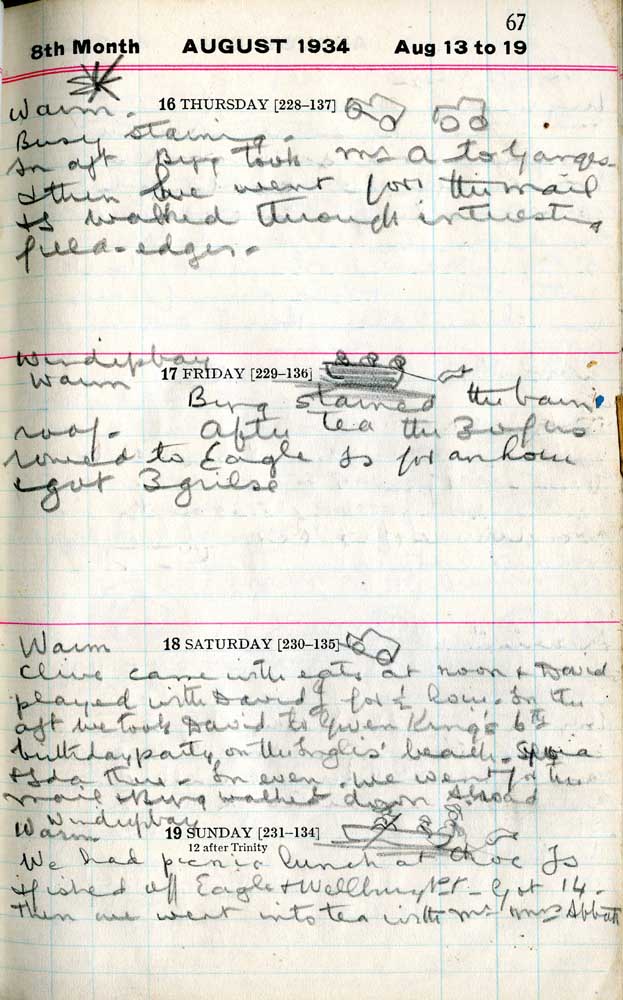 67
8th Month AUGUST 1934 Aug 13 to 19
Warm. 16 THURSDAY [228–137]
Busy staining.
In aft Byng took Mrs A to Ganges.
& then we went for the mail
& I walked through interesting
field-edges.
Windyish bay
Warm 17 FRIDAY [229–136]
Byng stained the barn
roof. After tea the 3 of us
rowed to Eagle Is for an hour
& got 3 grilse
Warm 18 SATURDAY [230–135]
Clive came with eats at noon & David
played with David for ½ hour. In the
aft we took David to Gwen King's 6th
birthday party on the Inglis' beach.
& Ida there. In even. we went for the
mail & Byng walked down
Windyish bay
Warm 19 SUNDAY [231–134]
12 after Trinity
We had picnic lunch at Is
& fished off Eagle & Pt. Got 14.
Then we went into tea with Mr Mrs Abbott